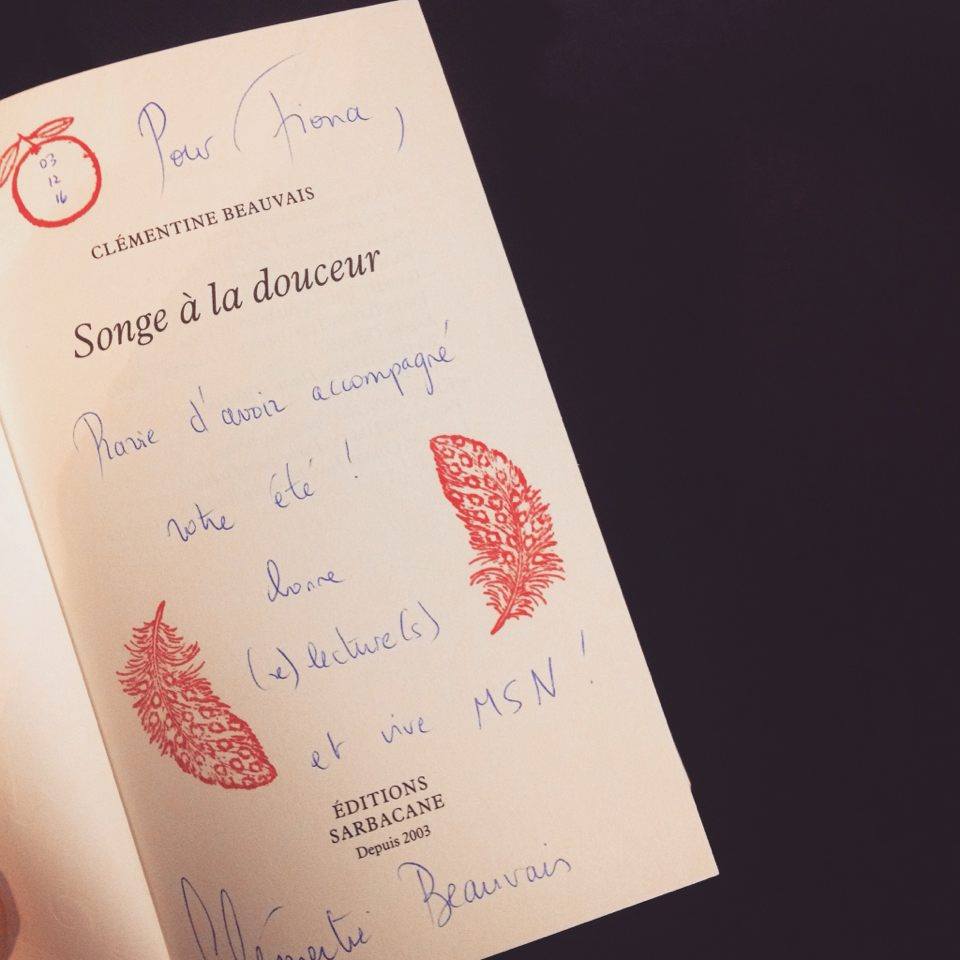 Pour Fiona,
03
12
16
CLÉMENTINE BEAUVAIS
Songe à la douceur
Ravie d'avoir accompagné
votre été !
bonne
(re)lecture(s)
et vive MSN !
ÉDITIONS
SARBACANE
Depuis 2003
Clémentine Beauvais